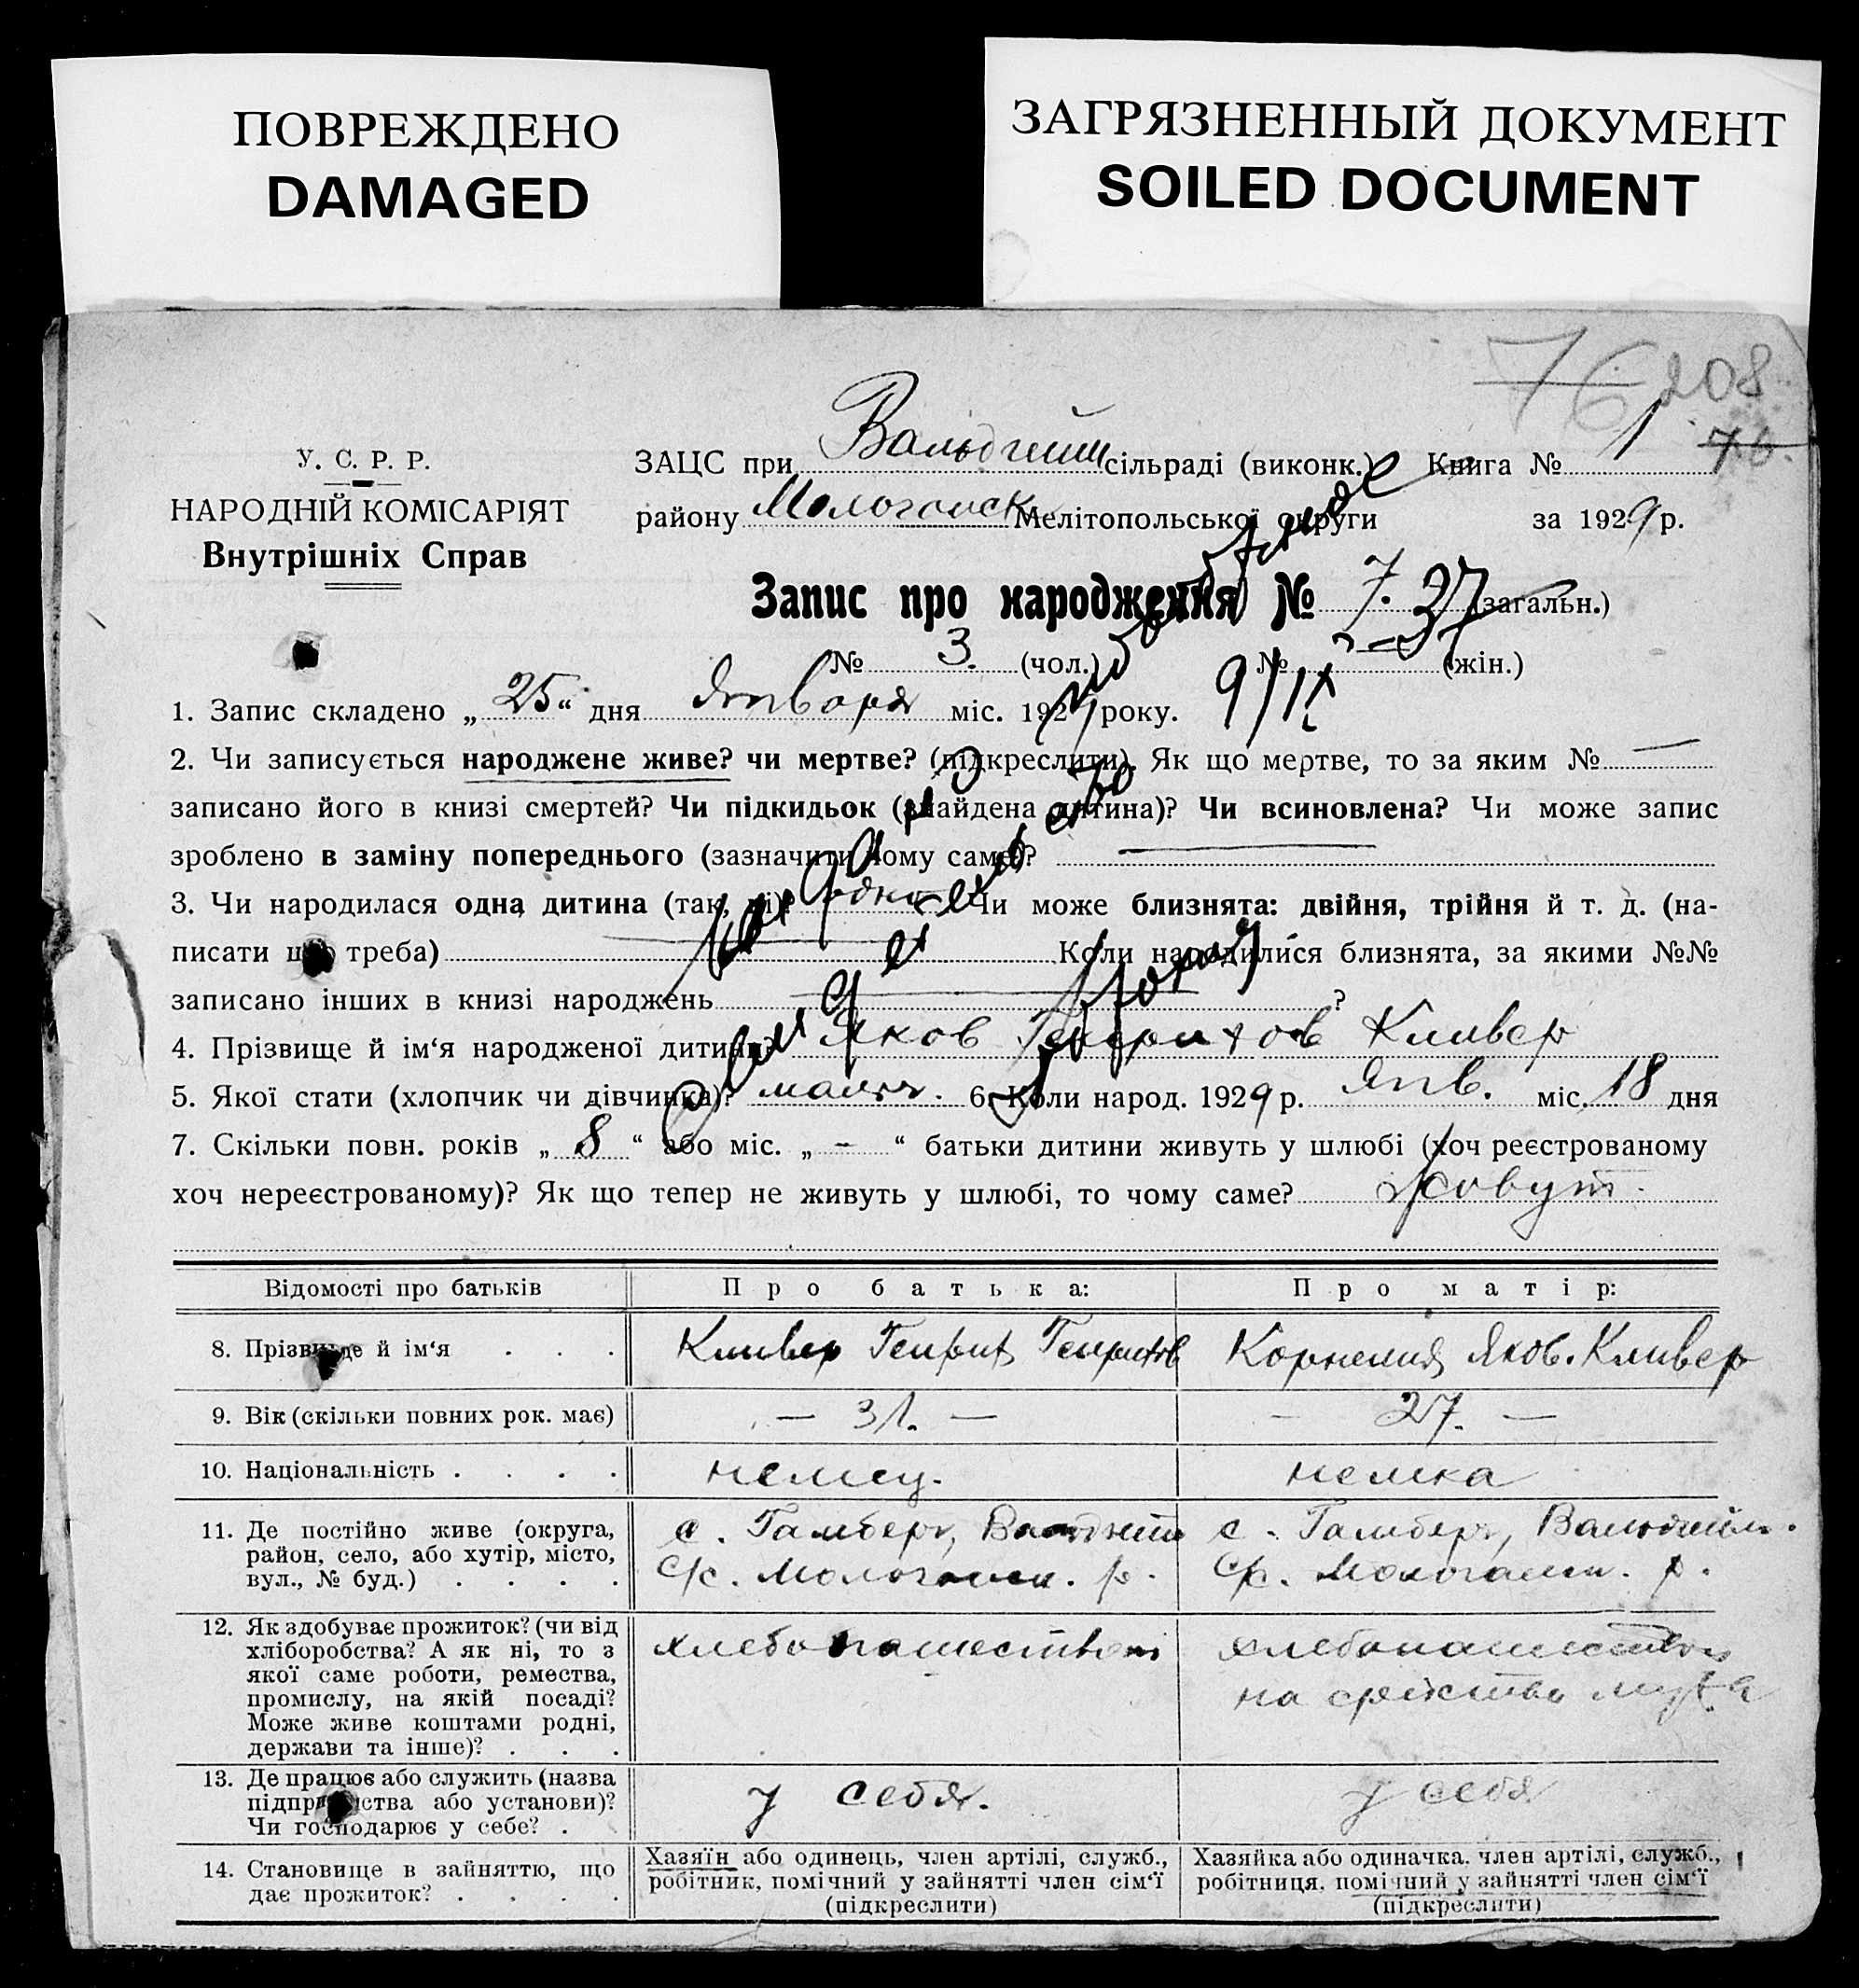 ПОВРЕЖДЕНО
DAMAGED
ЗАГРЯЗНЕННЫЙ ДОКУМЕНТ
SOILED DOCUMENT
76 208
76.
У. С. Р. Р.
НАРОДНІЙ КОМІСАРІЯТ
Внутрішніх Справ
ЗАЦС при Вальдгейм сільраді (виконк.) Книга № 1
району Мологанск Мелітопольської округи за 1929 р.
Запис про народження № 7. 37 (загальн.)
№ 3. (чол.) № (жін.)
1. Запис складено „25“ дня Января міс. 1929 року. 9/IX
2. Чи записується народжене живе? чи мертве? (підкреслити). Як що мертве, то за яким № —
записано його в книзі смертей? Чи підкидьок (знайдена дитина)? Чи всиновлена? Чи може запис
зроблено в заміну попереднього (зазначити чому саме)?
3. Чи народилася одна дитина (так, ні)? одна Чи може близнята: двійня, трійня й т. д. (на-
писати що треба) Коли народилися близнята, за якими №№
записано інших в книзі народжень ?
4. Прізвище й ім‘я народженої дитини? Яков Генрихов Кливер
5. Якої стати (хлопчик чи дівчинка)? мальч. 6. Коли народ. 1929 р. Янв. міс. 18 дня
7. Скільки повн. років „8“ або міс. „-“ батьки дитини живуть у шлюбі (хоч реєстрованому
хоч нереєстрованому)? Як що тепер не живуть у шлюбі, то чому саме? живут.
Відомості про батьків Про батька: Про матір:
8. Прізвище й ім‘я . . . Кливер Генрих Генрихов Корнелия Яков. Кливер
9. Вік (скільки повних рок. має) — 31. — - 27. —
10. Національність . . . . немец. немка
11. Де постійно живе (округа,
район, село, або хутір, місто,
вул., № буд.) . . . .
с. Гамберг, Вальдгейм
с/с. Мологанск. р.
с. Гамберг, Вальдгейм.
с/с. Мологанск. р.
12. Як здобуває прожиток? (чи від
хліборобства? А як ні, то з
якої саме роботи, ремества,
промислу, на якій посаді?
Може живе коштами родні,
держави та інше)? . . .
хлебопашеством
хлебопашеством
на средства мужа
13. Де працює або служить (назва
підприємства або установи)?
Чи господарює у себе? .
у себя.
у себя
14. Становище в зайняттю, що
дає прожиток? . . . .
Хазяїн або одинець, член артілі, служб.,
робітник, помічний у зайнятті член сім‘ї
(підкреслити)
Хазяйка або одиначка, член артілі, служб.,
робітниця, помічний у зайнятті член сім‘ї
(підкреслити)